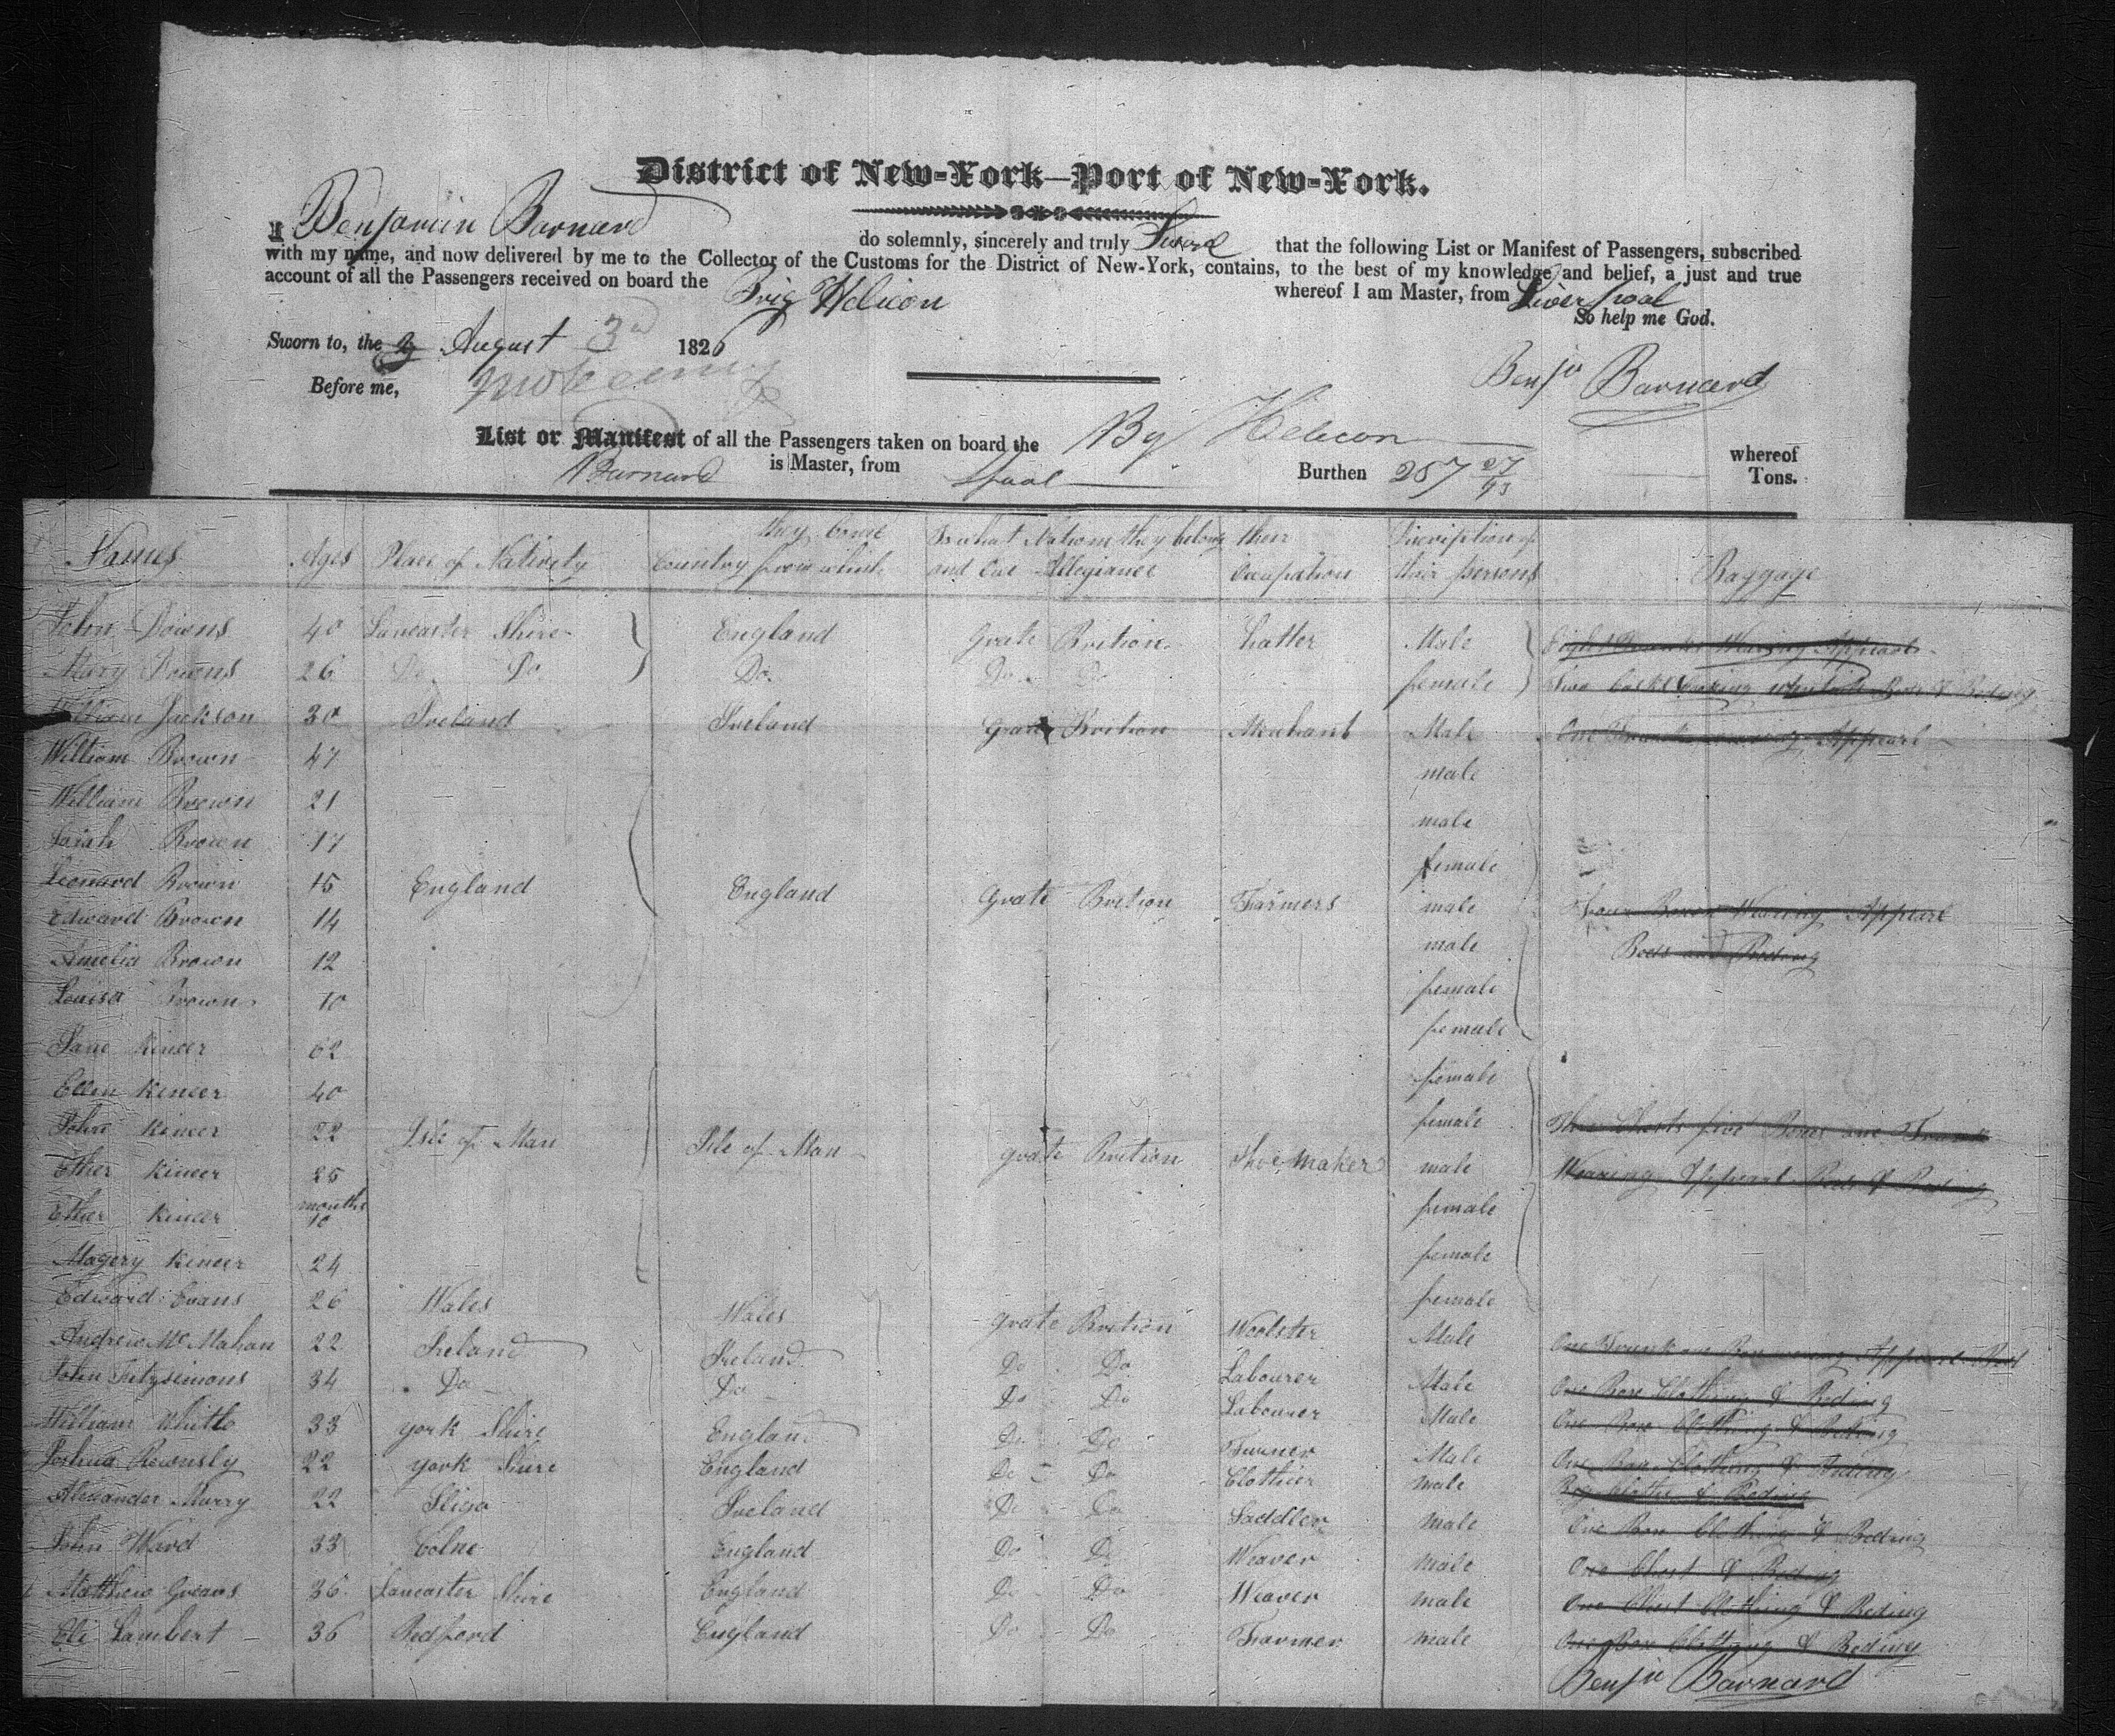 District of New-York—Port of New-York.
I Benjamin Barnard do solemnly, sincerely and truly that the following List or Manifest of Passengers, subscribed
with my name, and now delivered by me to the Collector of the Customs for the District of New-York, contains, to the best of my knowledge and belief, a just and true
account of all the Passengers received on board the Brig Helicon whereof I am Master, from Liverpool
So help me God.
Sworn to, the August 3d 1826
Before me,
Benjn Barnard
List or Manifest of all the Passengers taken on board the Bg Helicon whereof
Barnard is Master, from Lpool Burthen Tons.
Names Ages Place of Nativity Country from which they Come To what Nation they belong and Owe Allegiance their Occupation Discription of their persons Baggage
John Downs 40 Lancaster Shire England Grate Brition hatter Male
Mary Downs 26 Do Do Do. Do Do female Beds & Beding
William Jackson 30 Ireland Ireland Grate Brition Merchant Male One Trunk Appearl
William Brown 47 male
William Brown 21 male
Sarah Brown 17 female
Leonard Brown 15 England England Grate Brition Farmers male Four Boxes Wearing Appearl
Edward Brown 14 male Beds and Beding
Amelia Brown 12 female
Louisa Brown 10 female
Jane Kineer 62 female
Ellen Kineer 40 female
John Kineer 22 Isle of Man Isle of Man Grate Brition Shoe Maker male Chests five Boxes one Trunk
Ether Kineer 25 female Wearing Appearl Beds & Beding
Ether Kineer months 10 female
Magery Kineer 24 female
Edward Evans 26 Wales Wales Grate Brition Male
Andrew McMahan 22 Ireland Ireland Do Do Labourer Male One Box Clothing & Beding
John Fitzsimons 34 Do Do Do Do Labourer Male One Box Clothing & Beding
William White 33 york Shire England Do Do Male One Box Clothing & Beding
Joshua 22 york Shire England Do Do Clothier male Clothes & Beding
Alexander Murry 22 Sligo Ireland Do Do Saddler male One Box Clothing & Beding
John Ward 33 Colne England Do Do Weaver male One Chest & Beding
Matthew Greavs 36 Lancaster Shire England Do Do Weaver male One Chest Clothing & Beding
Eli Lambert 36 Bedford England Do Do Farmer male One Box Clothing & Beding
Benjn Barnard